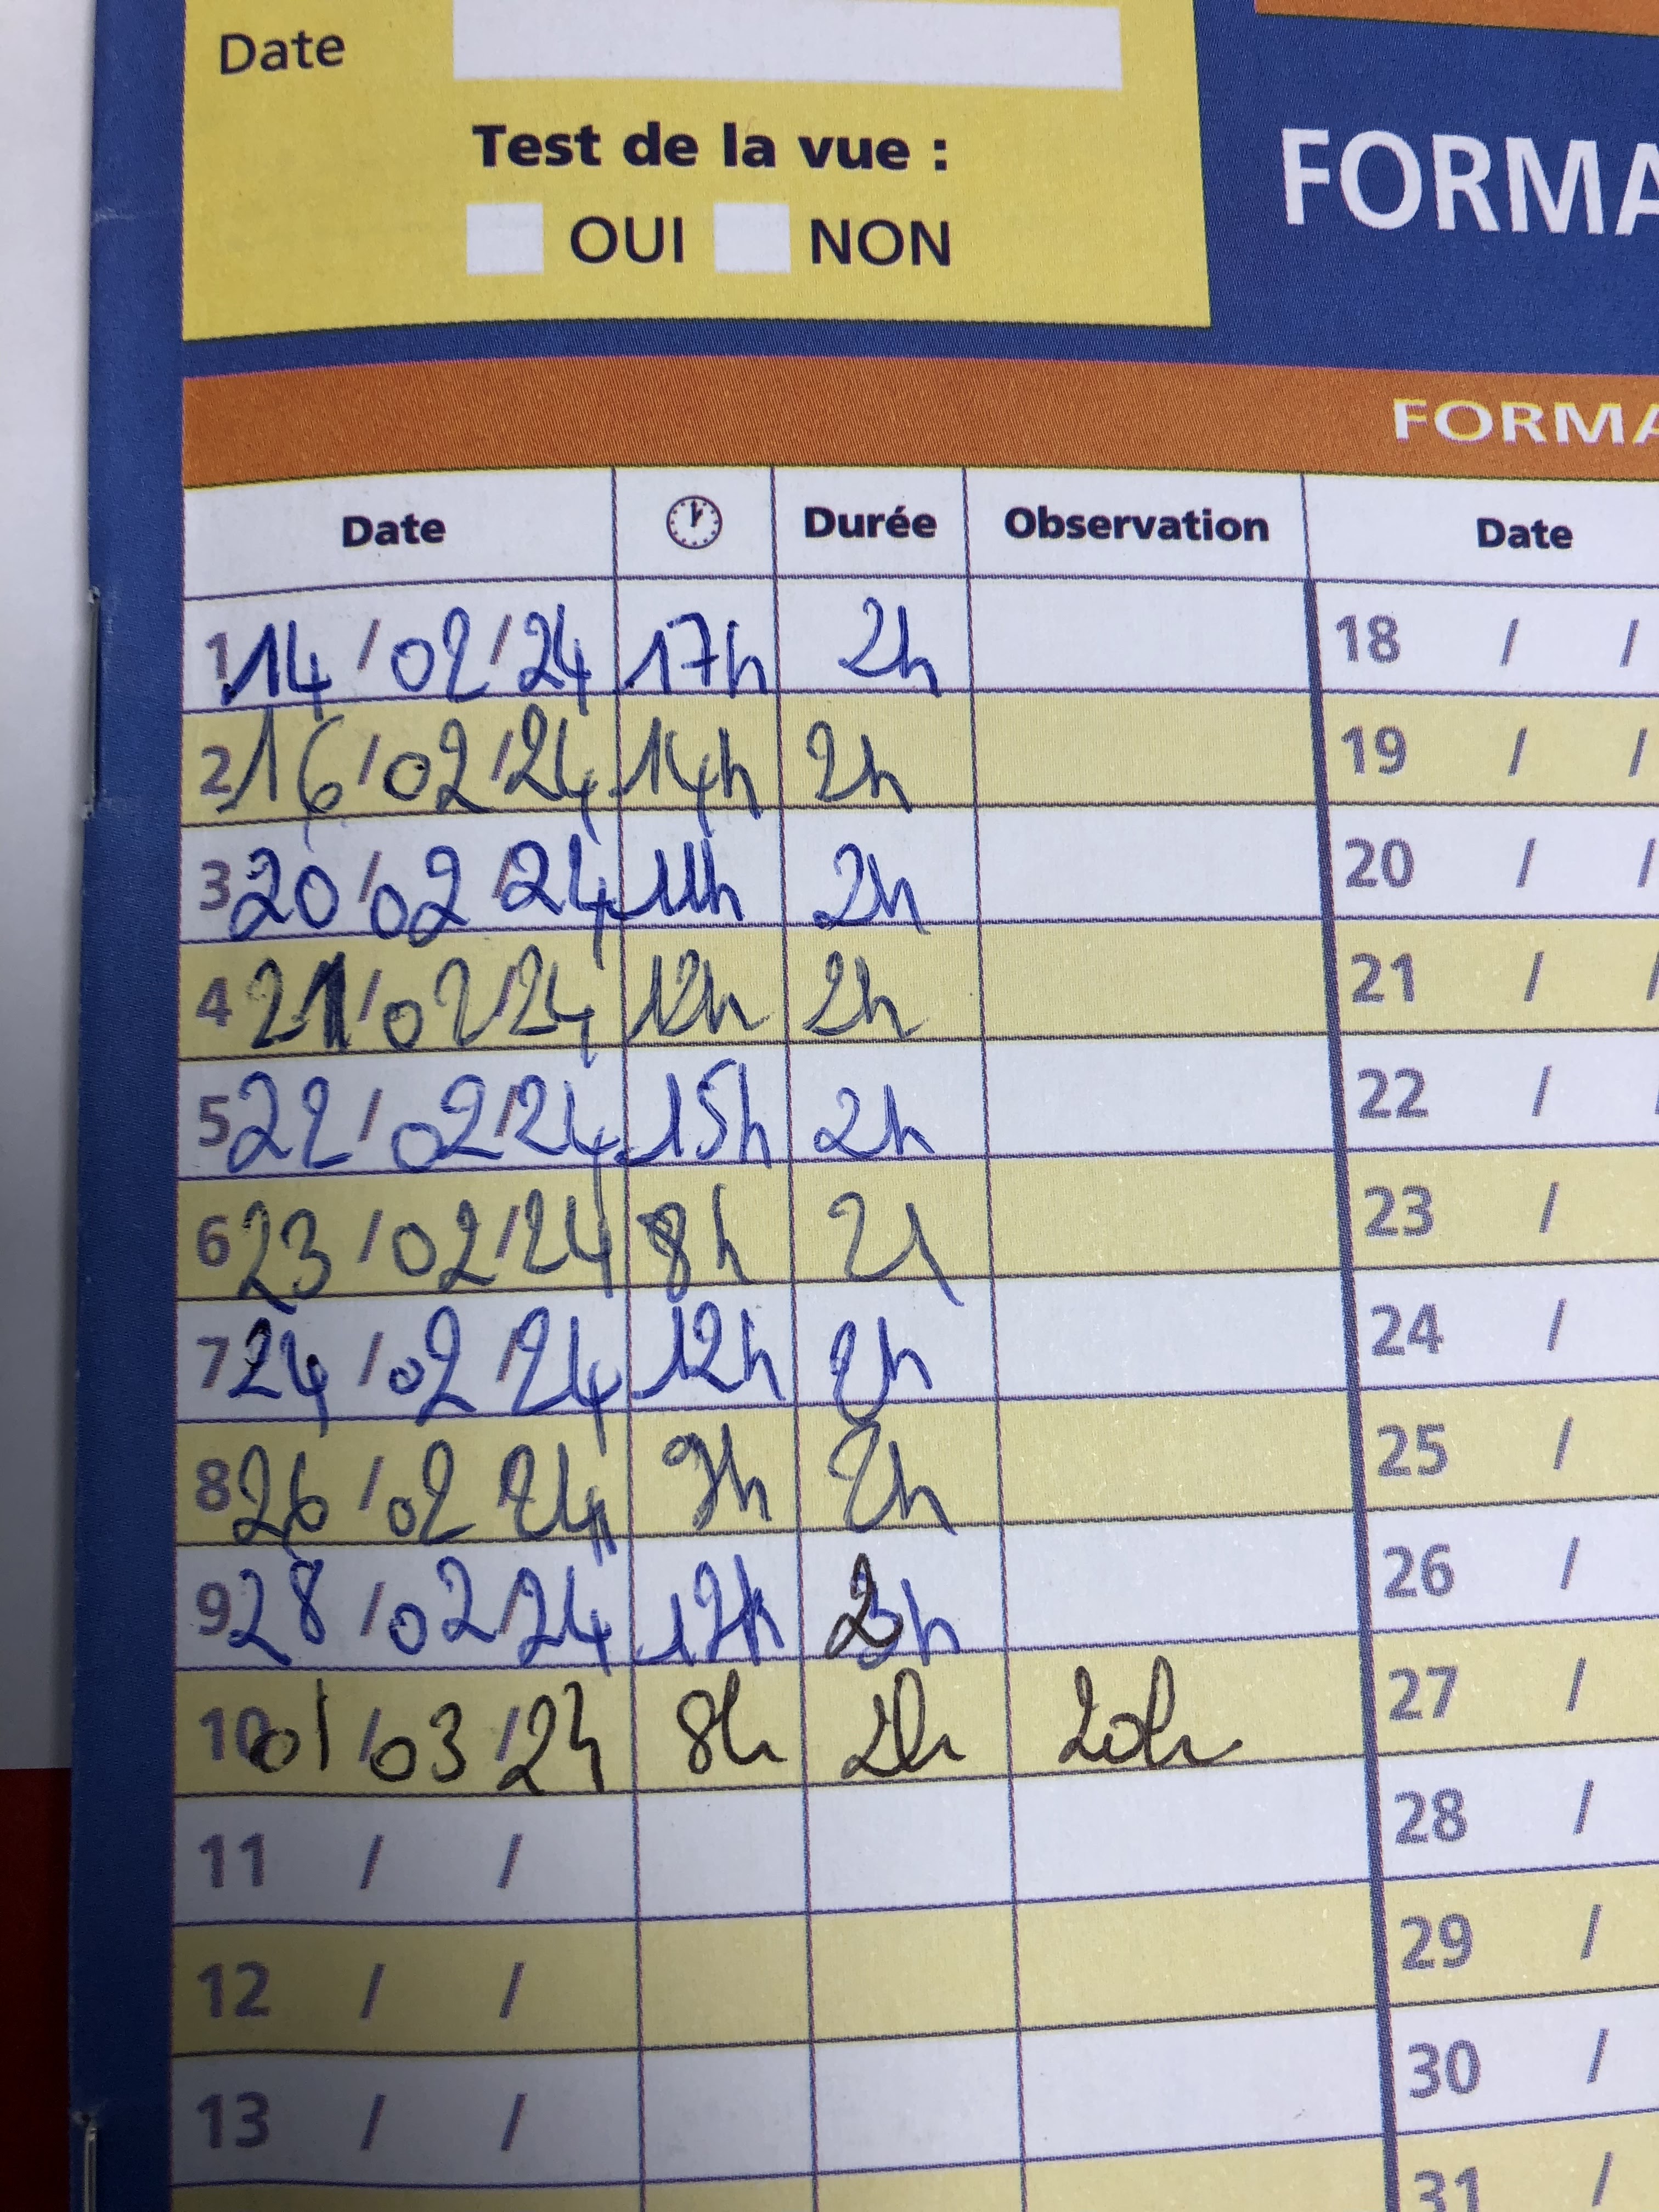 Date
Test de la vue :
OUI NON
FORMA
FORMA
Date Durée Observation Date
1 14/02/24 17h 2h 18 / /
2 16/02/24 14h 2h 19 / /
3 20/02/24 11h 2h 20 / /
4 21/02/24 12h 2h 21 / /
5 22/02/24 15h 2h 22 / /
6 23/02/24 8h 2h 23 /
7 24/02/24 12h 2h 24 /
8 26/02/24 9h 2h 25 /
9 28/02/24 12h 2h 26 /
10 01/03/24 8h 2h 20h 27 /
11 / / 28 /
12 / / 29 /
13 / / 30 /
31 /